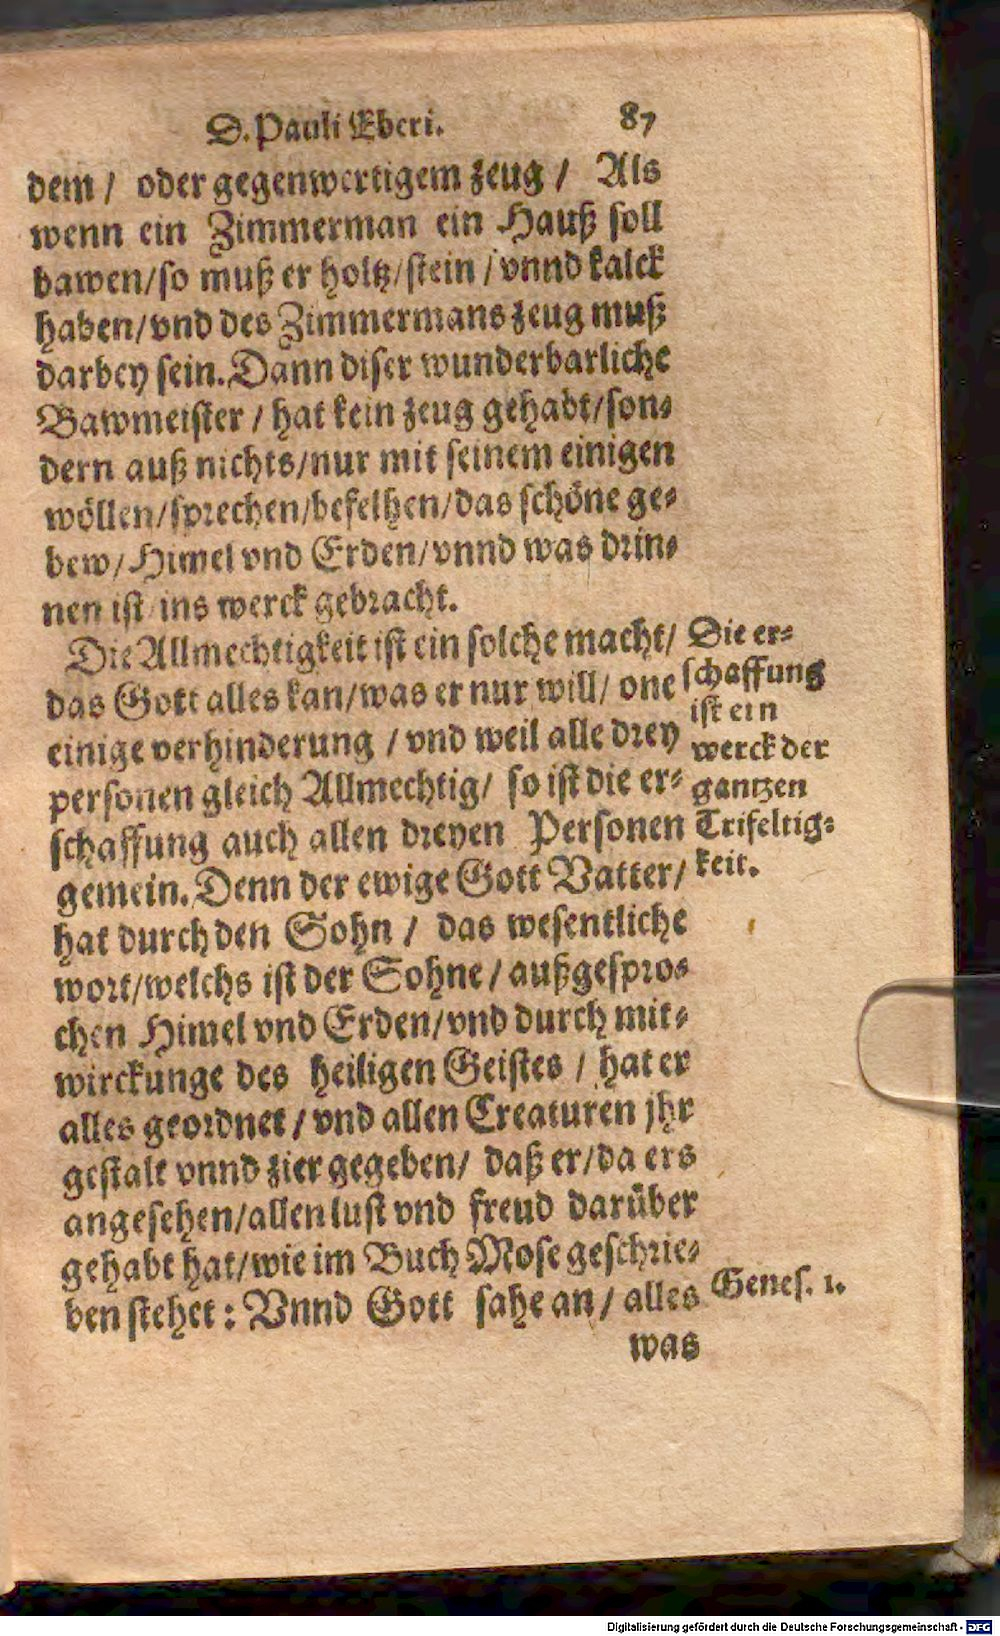 D. Pauli Eberi. 87
dem / oder gegenwertigem zeug / Als
wenn ein Zimmerman ein Hauß soll
bawen/so muß er holtz/stein / vnnd kalck
haben/vnd des Zimmermans zeug muß
darbey sein. Dann diser wunderbarliche
Bawmeister / hat kein zeug gehabt/son⸗
dern auß nichts/nur mit seinem einigen
wöllen/sprechen/befelhen/das schöne ge⸗
bew/Himel vnd Erden/vnnd was drin⸗
nen ist/ins werck gebracht.
Die Allmechtigkeit ist ein solche macht/
das Gott alles kan/was er nur will/ one
einige verhinderung / vnd weil alle drey
personen gleich Allmechtig/ so ist die er⸗
schaffung auch allen dreyen Personen
gemein. Denn der ewige Gott Vatter/
hat durch den Sohn / das wesentliche
wort/welchs ist der Sohne / außgespro⸗
chen Himel vnd Erden/vnd durch mit⸗
wirckunge des heiligen Geistes / hat er
alles geordnet / vnd allen Creaturen jhr
gestalt vnnd zier gegeben/ daß er/da ers
angesehen/allen lust vnd freud darüber
gehabt hat/wie im Buch Mose geschrie⸗
ben stehet : Vnnd Gott sahe an/ alles
was
Die er⸗
schaffung
ist ein
werck der
gantzen
Trifeltig⸗
keit.
Genes. 1.
Digitalisierung gefördert durch die Deutsche Forschungsgemeinschaft - DFG